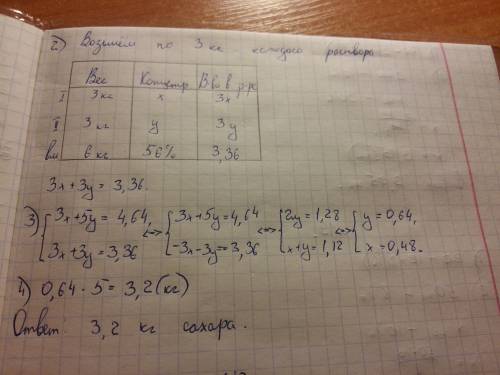 2) Возьмём по 3 кг каждого раствора
Вес Концентр В во в р-ре
I 3 кг x 3x
II 3 кг y 3y
вм 6 кг 56% 3,36
3x + 3y = 3,36.
3) { 3x + 5y = 4,64, <=> { 3x + 5y = 4,64 <=> { 2y = 1,28 <=> { y = 0,64,
3x + 3y = 3,36 -3x - 3y = 3,36 x + y = 1,12 x = 0,48.
4) 0,64 · 5 = 3,2 (кг)
Ответ: 3,2 кг сахара.